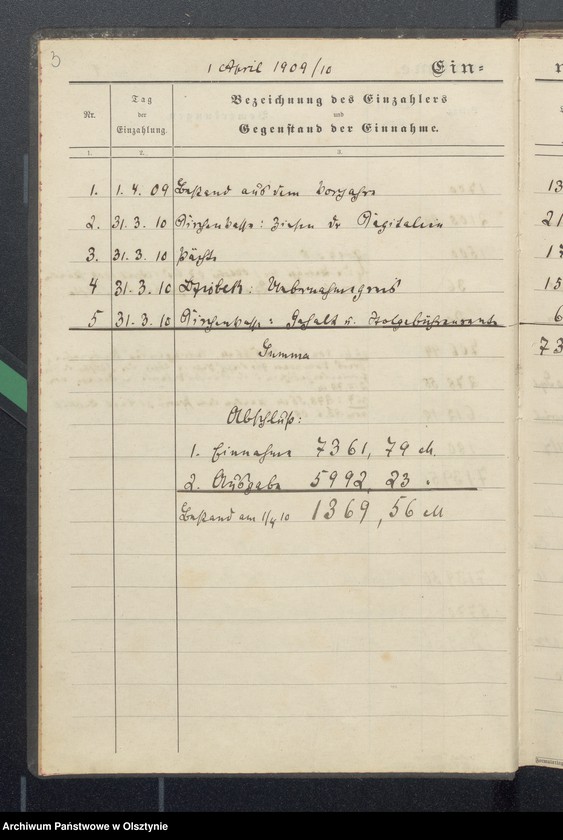 3
1 April 1909/10
Ein=
Nr.
Tag
der
Einzahlung.
Bezeichnung des Einzahlers
und
Gegenstand der Einnahme.
1. 2. 3.
1. 1. 4. 09 Bestand aus dem Vorjahre
2. 31. 3. 10 Kirchenkasse: Zinsen der Kapitalien
3. 31. 3. 10 Pächte
4 31. 3. 10 Uebernahmepreis
5 31. 3. 10 Kirchenkasse: Gehalt u. Stolgebührenrente
Summa
Abschluß:
1. Einnahme 7361, 79 M.
2. Ausgabe 5992, 23 "
Bestand am 1/4 10 1369, 56 M
13
21
17
15
6
73
Archiwum Państwowe w Olsztynie